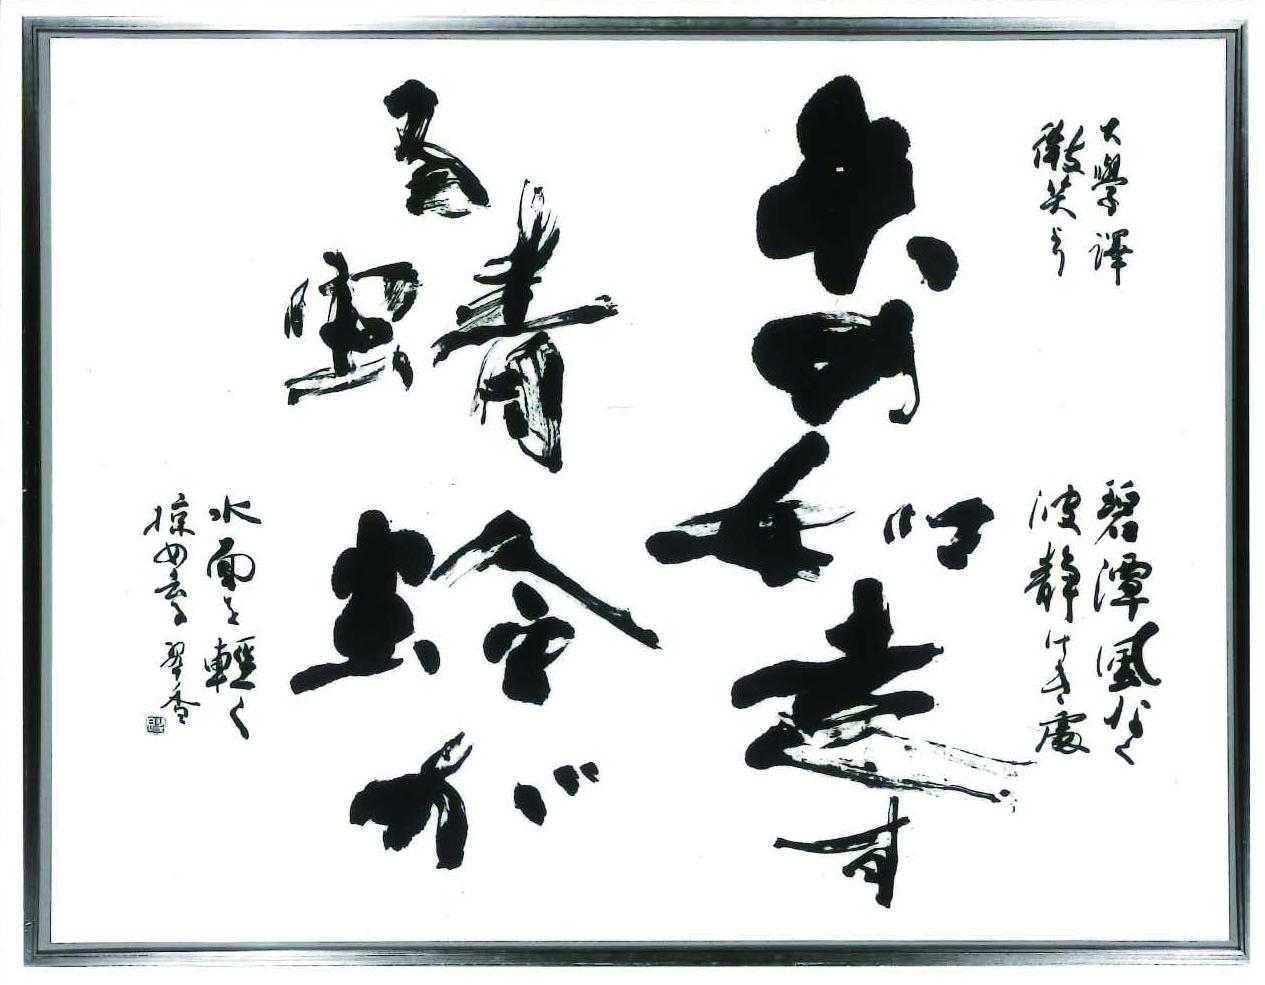 大學譯
微笑より
碧潭風なく
波静けき處
矢の如走す
る蜻蛉が
水面を輕く
掠め去る 翠香